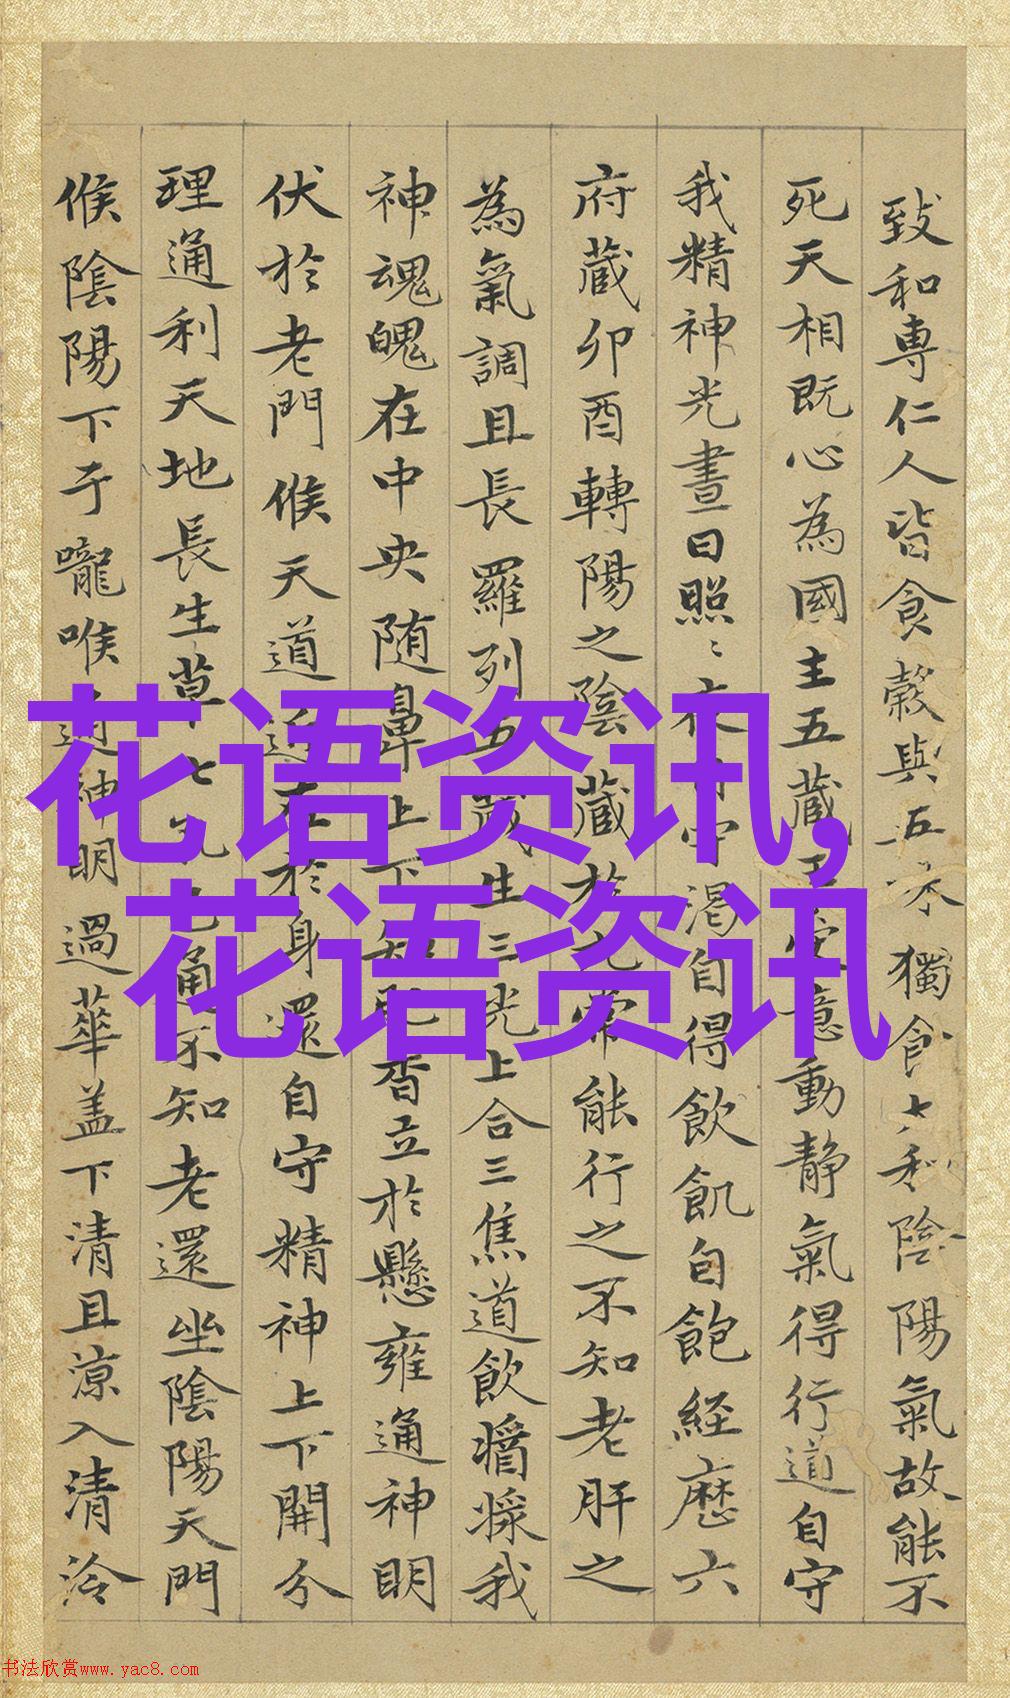 致和專仁人皆食穀與五味獨食大和陰陽氣故能不
死天相既心為國主五藏王受意動静氣得行道自守
我精神光晝日照〻夜自守渴自得飲飢自飽經歷六
府藏卯酉轉陽之陰藏於九常能行之不知老肝之
為氣調且長羅列五藏生三光上合三焦道飲醬漿我
神魂魄在中央随鼻上下知肥香立於懸雍通神明
伏於老門候天道近在於身還自守精神上下開分
理通利天地長生草七孔已通不知老還坐陰陽天門
候陰陽下于嚨喉通神明過華盖下清且涼入清泠
花语资讯,
花语资讯
书法欣赏www.yac8.com